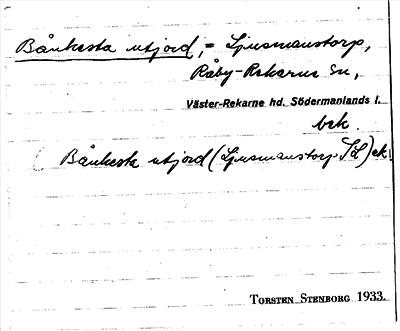 Bånkesta utjord, = Ljusmanstorp,
Råby-Rekarne sn,
Väster-Rekarne hd. Södermanlands l.
bek.
( Bånkesta utjord (Ljusmanstorp JL) ek
TORSTEN STENBORG 1933.